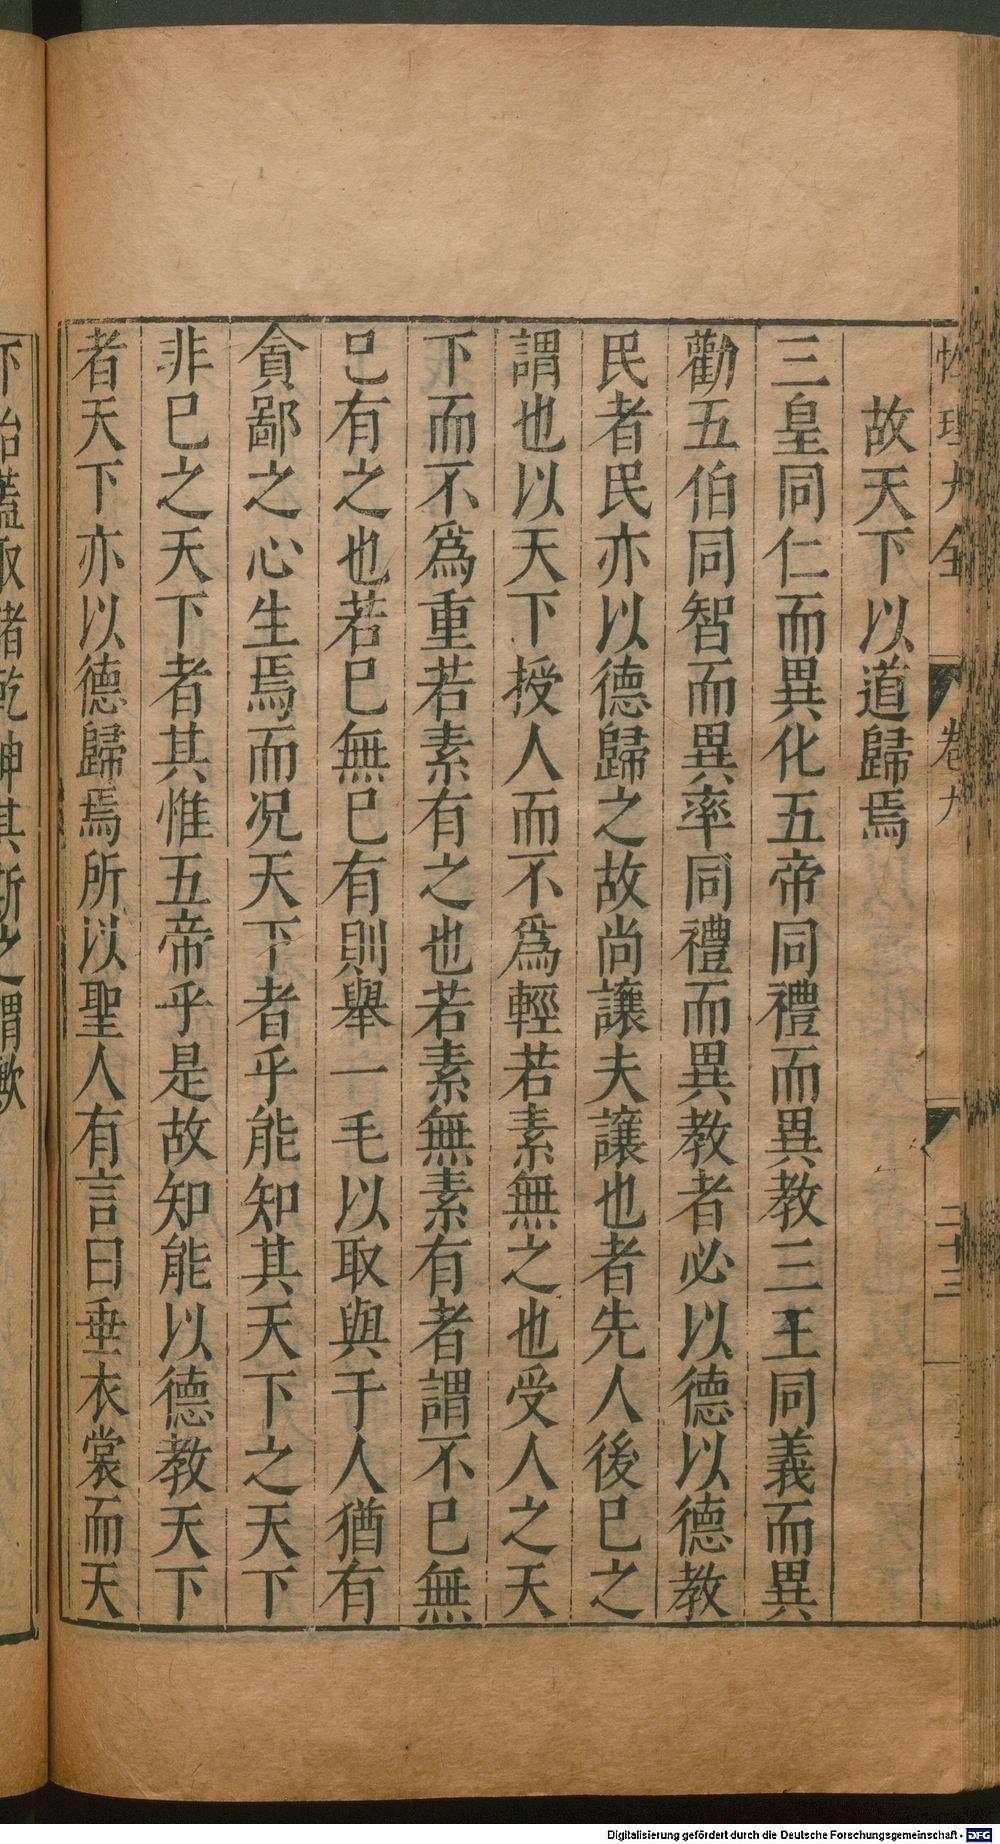 性理大全 卷九 二十三
故天下以道歸焉
三皇同仁而異化五帝同禮而異教三王同義而異
勸五伯同智而異率同禮而異教者必以德以德教
民者民亦以德歸之故尚讓夫讓也者先人後已之
謂也以天下授人而不為輕若素無之也受人之天
下而不爲重若素有之也若素無素有者謂不已無
已有之也若已無已有則舉一毛以取與于人猶有
貪鄙之心生焉而况天下者乎能知其天下之天下
非已之天下者其惟五帝乎是故知能以德教天下
者天下亦以德歸焉所以聖人有言曰垂衣裳而天
下治蓋取諸乾坤其斯之謂歟
Digitalisierung gefördert durch die Deutsche Forschungsgemeinschaft - DFG